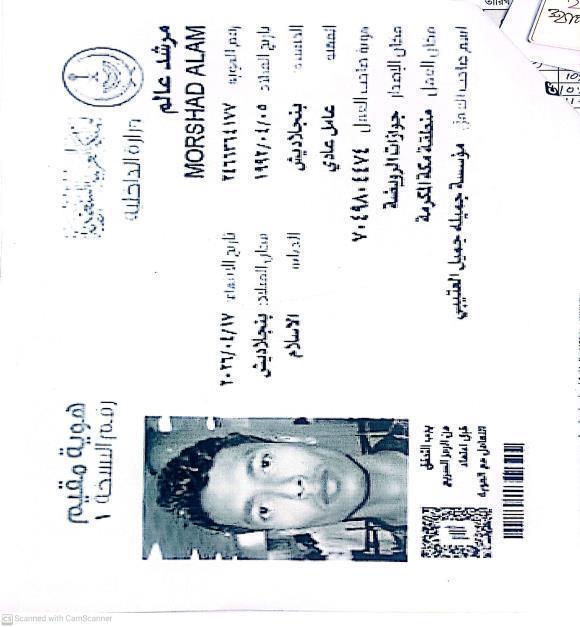 وزارة الداخلية
هوية مقيم
رقم النسخة ١
مرشد عالم
MORSHAD ALAM
رقم الهوية تاريخ الانتهاء ٢٠٢٦/٠٤/١٧
تاريخ الميلاد ١٩٩٢/٠٤/٠٥ مكان الميلاد: بنجلاديش
الجنسية بنجلاديش الديانة الاسلام
المهنة عامل عادي
هوية صاحب العمل ٧٠٤٩٨٠٤٤٧٤
مكان الإصدار جوازات الرويضة
مكان العمل منطقة مكة المكرمة
اسم صاحب العمل مؤسسة جميله جميل العتيبي
يجب التحقق
من الرمز السريع
قبل اعتماد
التعامل مع الهوية
CS Scanned with CamScanner